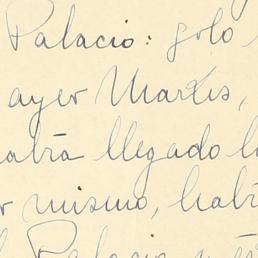 Palacio: solo
ayer Martes,
habrá llegado l
r mismo, habr
l Palacio